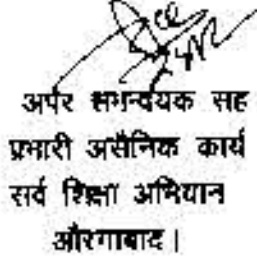 अपर समन्वयक सह
प्रभारी असैनिक कार्य
सर्व शिक्षा अभियान
औरगाबाद।